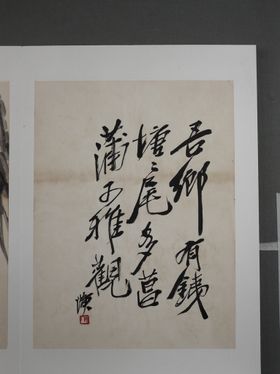 吾鄉有銕
塘〻尾多菖
蒲可雅觀